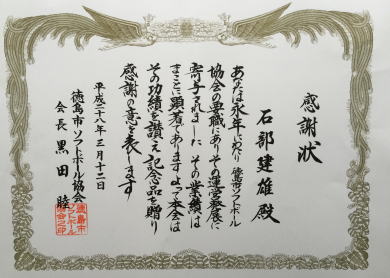 感謝状
石部建雄殿
あなたは永年にわたり徳島市ソフトボール
協会の要職にありその運営発展に
寄与されましたその業績は
まことに顕著でありますよって本会は
その功績を讃え記念品を贈り
感謝の意を表します
平成二八年三月十二日
徳島市ソフトボール協会
会長黒田睦
徳島市
ソフトボール
協会之印